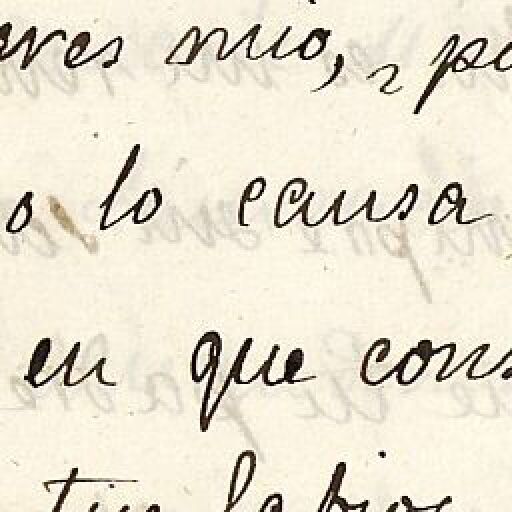 eres mio, y po
o lo causa
en que cons
tus labios